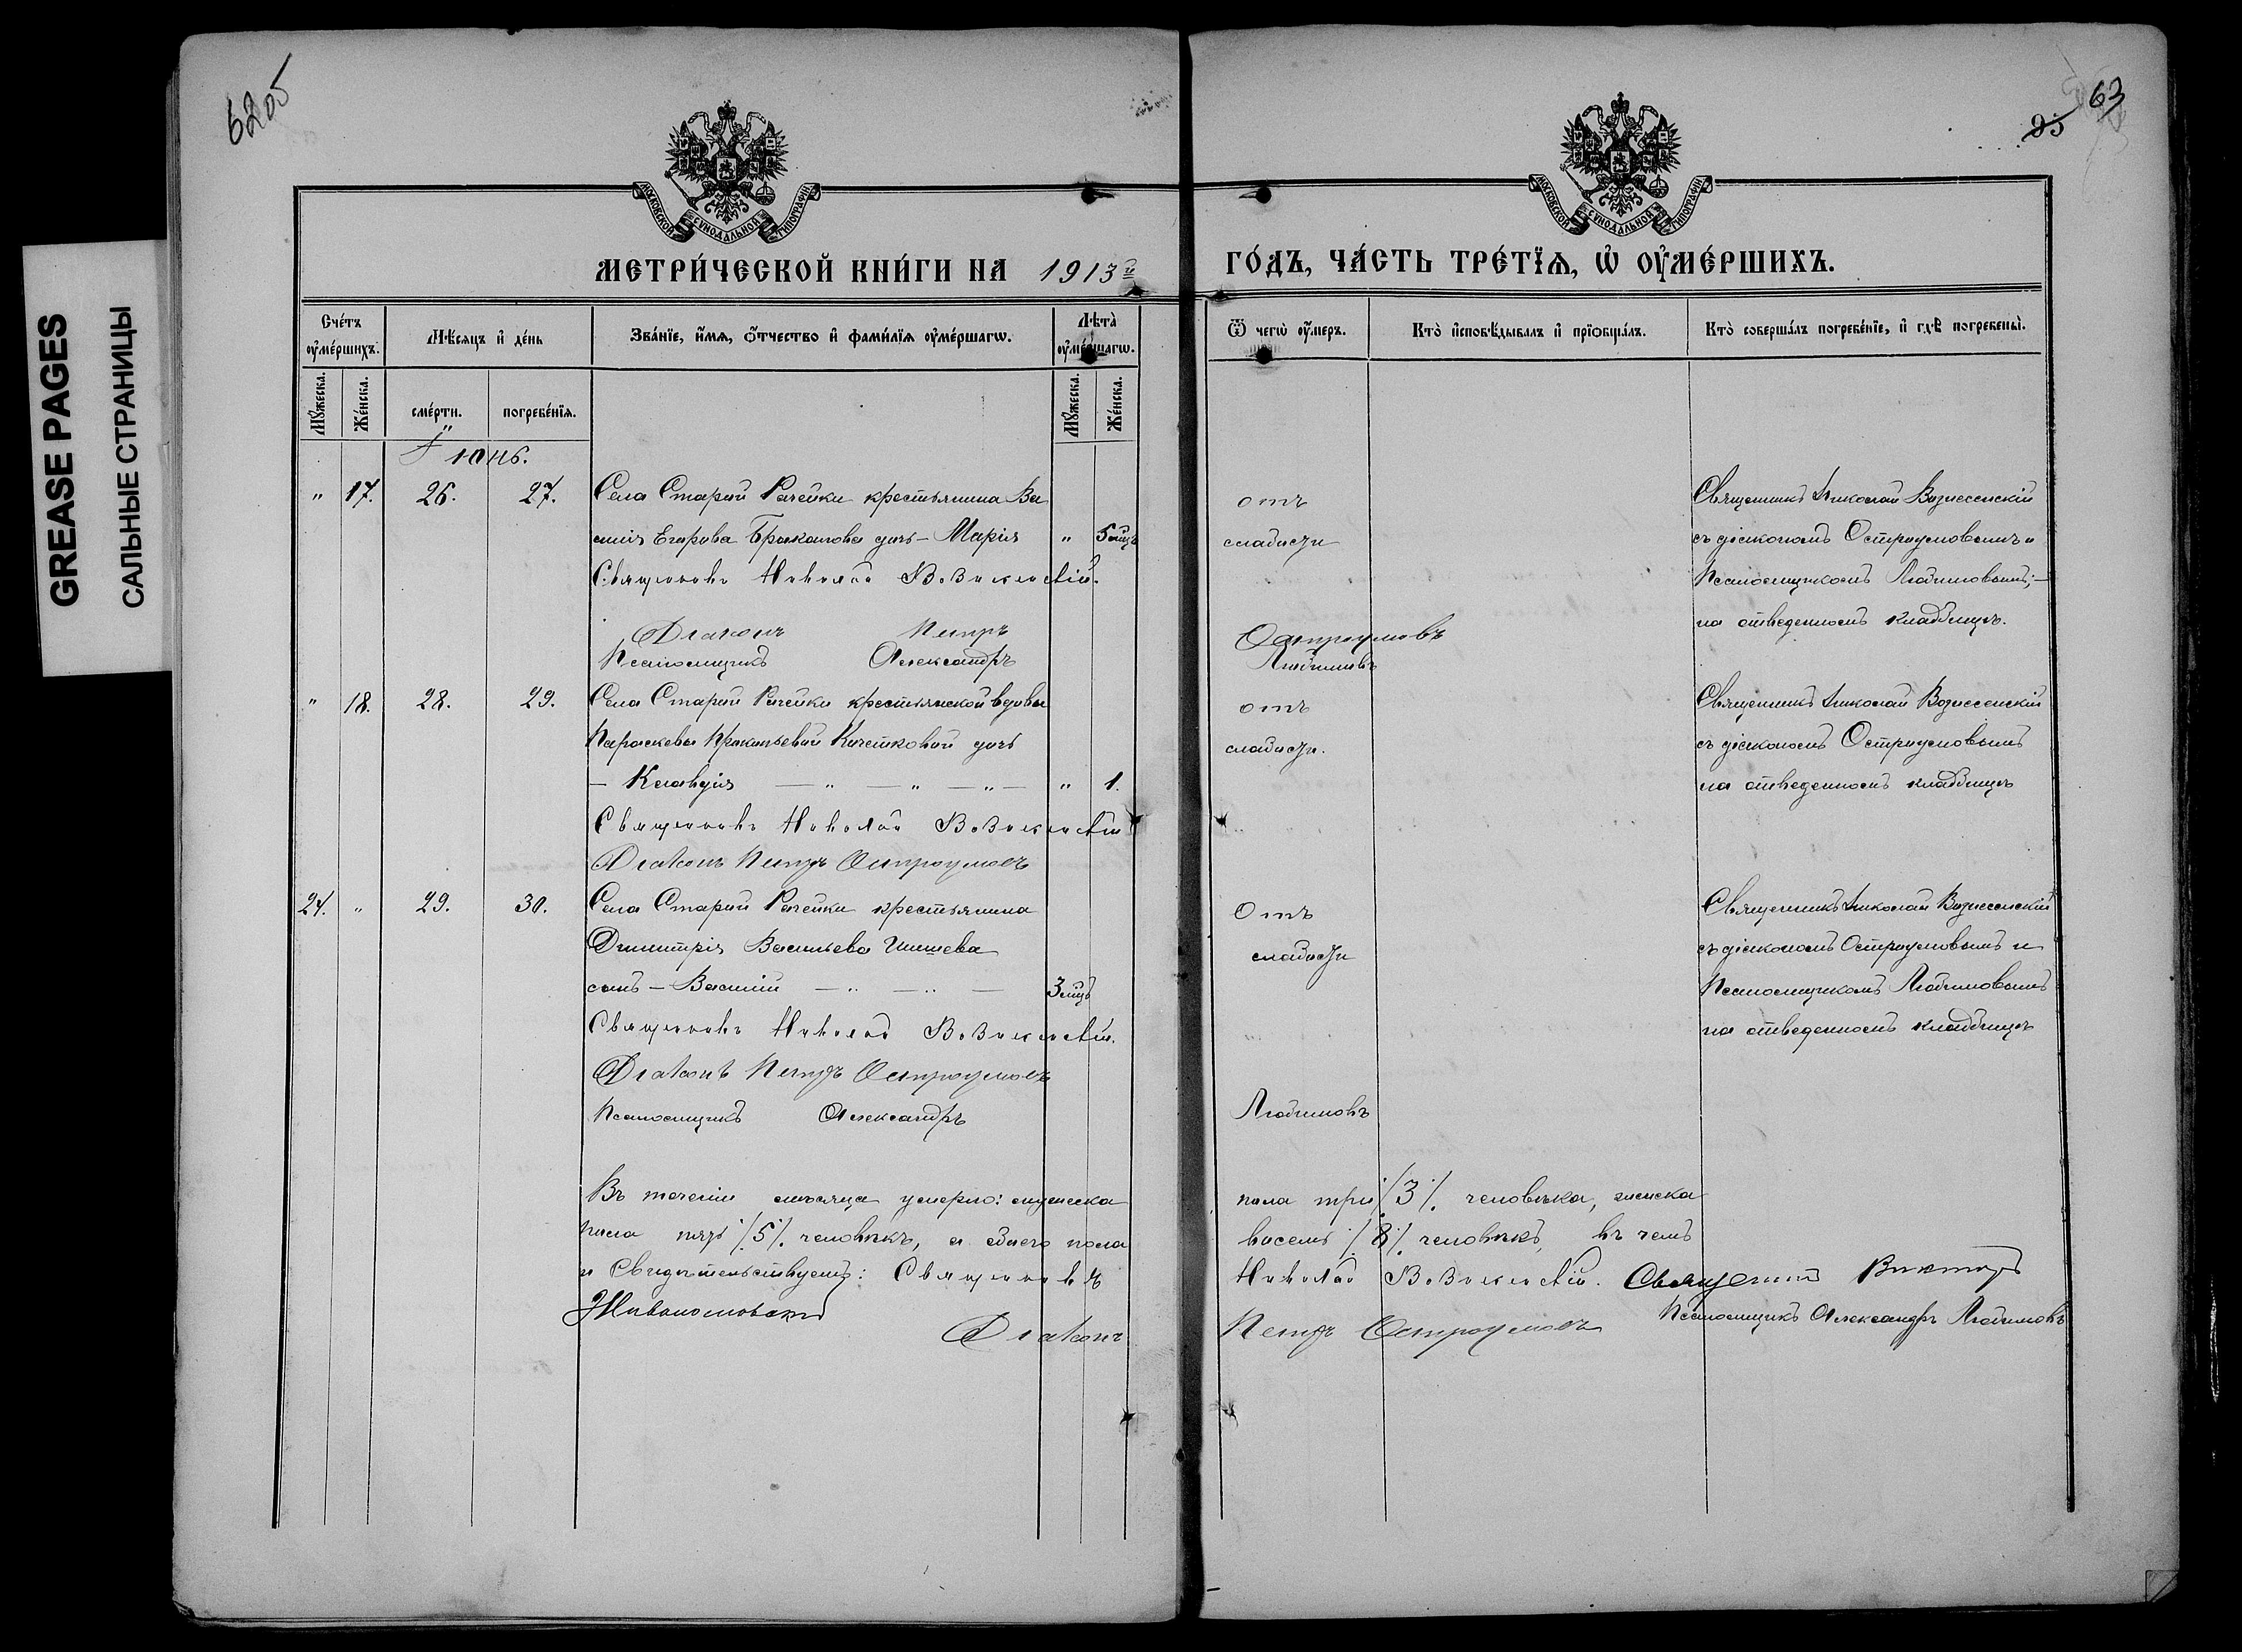 6205
63
95
GREASE PAGES
САЛЬНЫЕ СТРАНИЦЫ
МОСКОВСКОЙ СѴНОДАЛЬНОЙ ТИПОГРАФІИ
МОСКОВСКОЙ СѴНОДАЛЬНОЙ ТИПОГРАФІИ
МЕТРИ́ЧЕСКОЙ КНИ́ГИ НА 1913й
ГО́ДЪ, ЧА́СТЬ ТРЕ́ТЇѦ, Ѡ҆ ОУ҆МЕ́РШИХЪ.
Сче́тъ оу҆ме́ршихъ.
Мѣ́сяцъ и҆ де́нь
Зва́нїе, и҆́мѧ, ѻ҆́тчество и҆ фамі́лїѧ оу҆ме́ршагѡ.
Лѣ́та оу҆ме́ршагѡ.
Ѿ чегѡ̀ оу҆́меръ.
Кто̀ и҆сповѣ́дывалъ и҆ прїѻбща́лъ.
Кто̀ соверша́лъ погребе́нїе, и҆ гдѣ̀ погребены̀.
Мꙋ́жеска.
Же́нска.
сме́рти.
погребе́нїѧ.
Мꙋ́жеска.
Же́нска.
Іюнь.
" 17. 26. 27. Села Старой Рачейки крестьянина Ва
силія Егорова Бражанова дочь – Марія " 5 мц.
Священникъ Николай Вознесенскій.
Діаконъ Петръ Остроумовъ
Псаломщикъ Александръ Любимовъ
отъ
слабости
Священникъ Николай Вознесенскій
съ діакономъ Остроумовымъ и
Псаломщикомъ Любимовымъ; –
на отведенномъ кладбищѣ.
" 18. 28. 29. Села Старой Рачейки крестьянской вдовы
Параскевы Прокопьевой Кочетковой дочь
– Клавдія – " – " – " – " 1.
Священникъ Николай Вознесенскій
Діаконъ Петръ Остроумовъ
отъ
слабости.
Священникъ Николай Вознесенскій
съ діакономъ Остроумовымъ
на отведенномъ кладбищѣ
24. " 29. 30. Села Старой Рачейки крестьянина
Димитрія Васильева Шишева
сынъ – Василій – " – " – 3 мц.
Священникъ Николай Вознесенскій.
Діаконъ Петръ Остроумовъ
Псаломщикъ Александръ Любимовъ
Отъ
слабости
Священникъ Николай Вознесенскій
съ діакономъ Остроумовымъ и
Псаломщикомъ Любимовымъ
на отведенномъ кладбищѣ
Въ теченіи мѣсяца умерло: мужеска пола три /3/. человѣка, женска
пола пять /5/. человѣкъ, а обоего пола восемь /8/. человѣкъ, въ чемъ
и Свидѣтельствуемъ: Священникъ Николай Вознесенскій. Священникъ Викторъ
Живоносновскій
Псаломщикъ Александръ Любимовъ
Діаконъ Петръ Остроумовъ